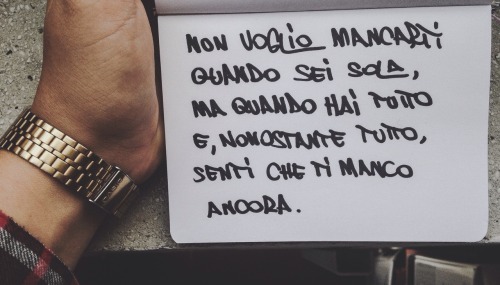 NON VOGLIO MANCARTI
QUANDO SEI SOLA,
MA QUANDO HAI TUTTO
E, NONOSTANTE TUTTO,
SENTI CHE TI MANCO
ANCORA.